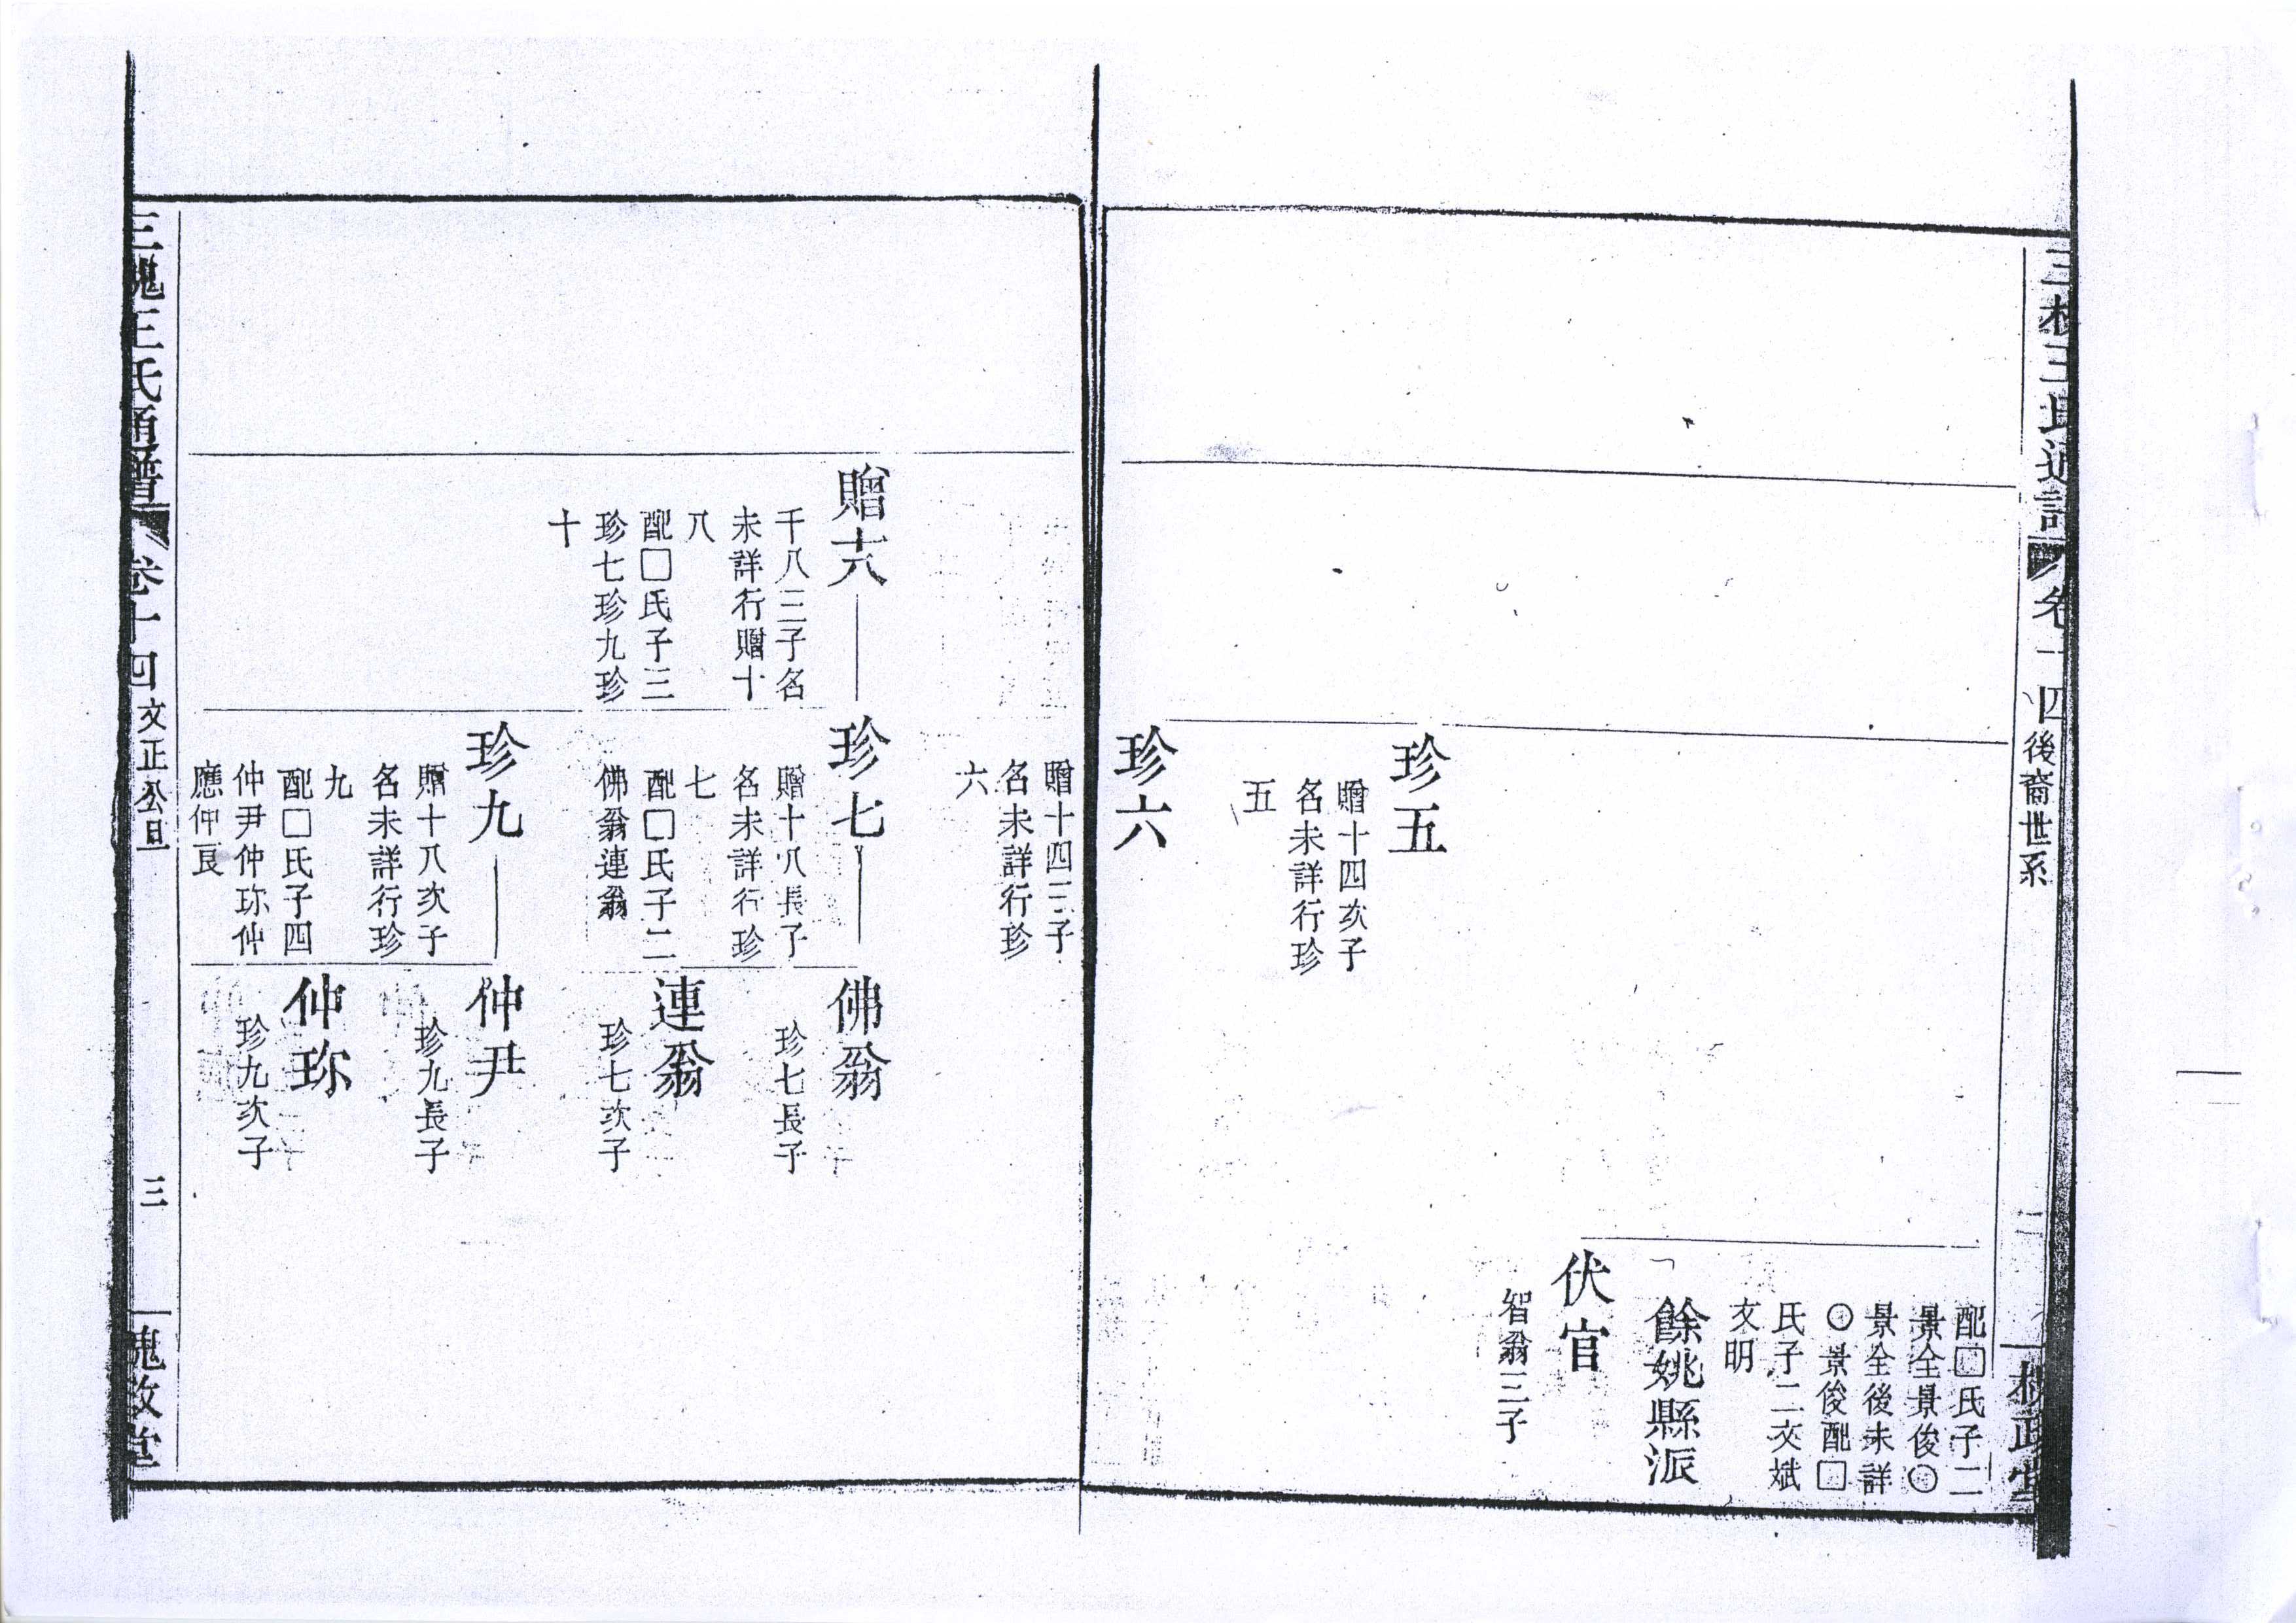 三槐王氏通譜
卷十四
後裔世系
二
三槐堂
配□氏子二
景全景俊〇
景全後未詳
〇景俊配□
氏子二文斌
文明
餘姚縣派
伏官
智翁三子
珍五
贈十四次子
名未詳行珍
五
珍六
贈十四三子
名未詳行珍
六
贈十八
千八三子名
未詳行贈十
八
配□氏子三
珍七珍九珍
十
珍七
贈十八長子
名未詳行珍
七
配□氏子二
佛翁連翁
佛翁
珍七長子
連翁
珍七次子
珍九
贈十八次子
名未詳行珍
九
配□氏子四
仲尹仲珎仲
應仲艮
仲尹
珍九長子
仲珎
珍九次子
三槐王氏通譜
卷十四
文正公旦
三